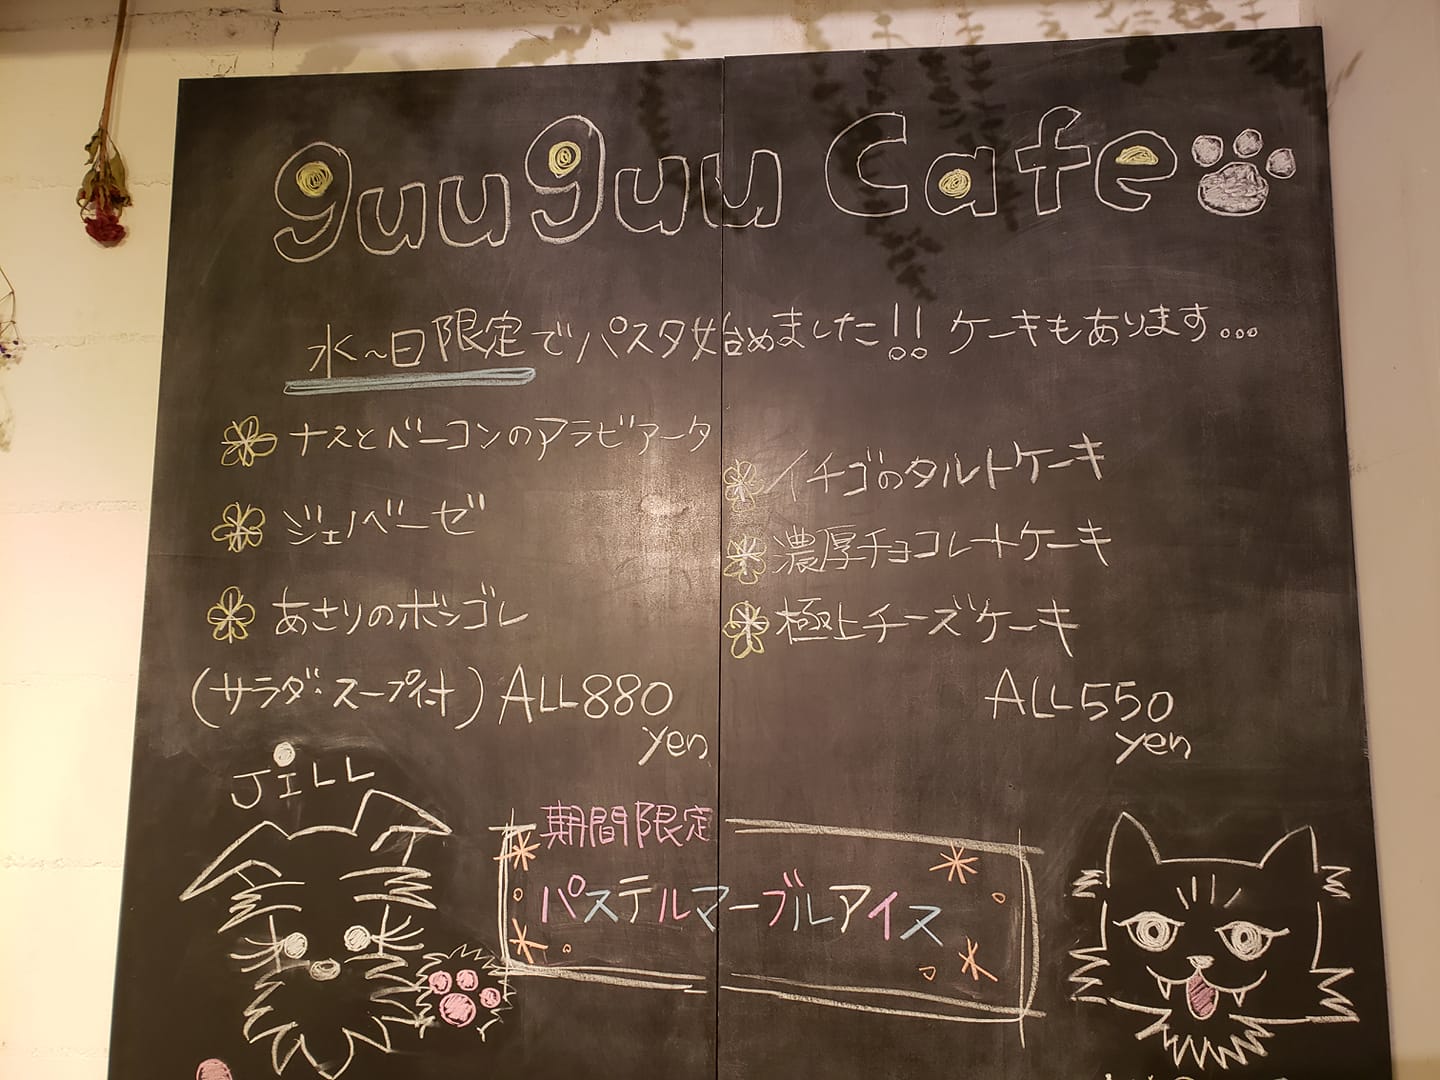 guuguu Cafe
水〜日限定でパスタ始めました!! ケーキもあります...
ナスとベーコンのアラビアータ
ジェノベーゼ
あさりのボンゴレ
(サラダ・スープ付) ALL880
yen
イチゴのタルトケーキ
濃厚チョコレートケーキ
極上チーズケーキ
ALL550
yen
JiLL
期間限定
パステルマーブルアイス